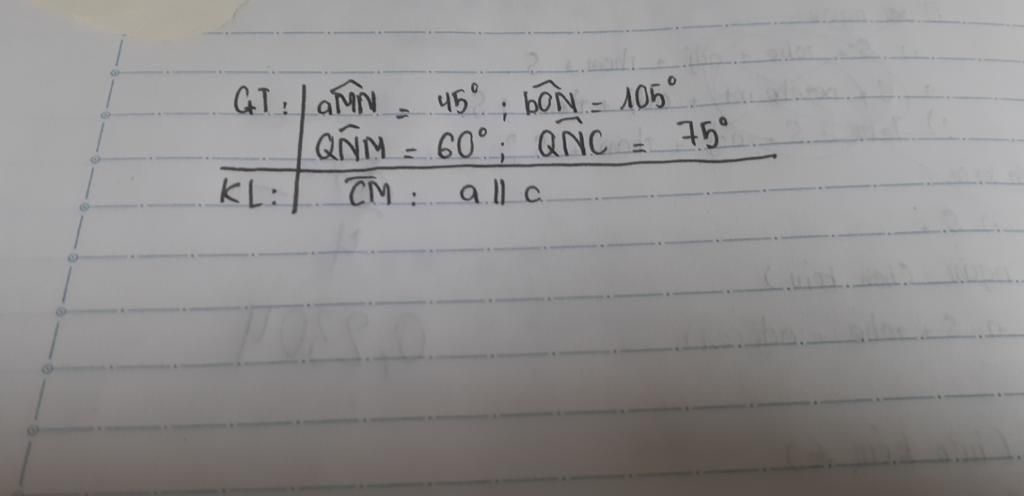 GT: | aM̂N = 45° ; bÔN = 105°
QN̂M = 60° ; QN̂C = 75°
KL: | CM : a // c